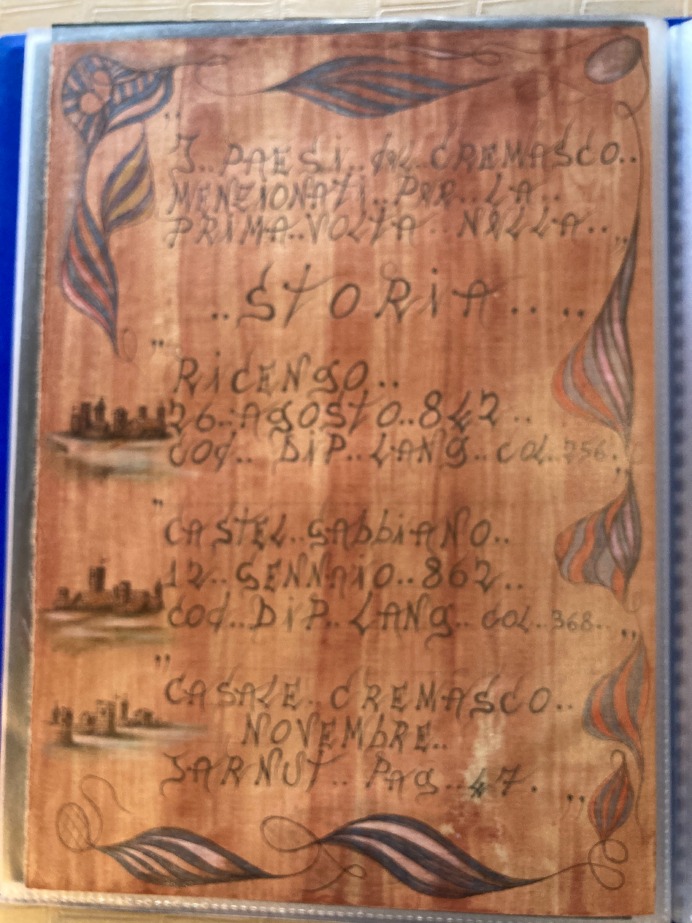 "I.. PAESI.. del.. CREMASCO..
MENZIONATI.. PER.. LA..
PRIMA.. VOLTA.. NELLA.. "
..STORIA.. ..
"RICENGO..
26.. AGOSTO.. 842..
COd.. DIP.. LANG.. COL.. 256. "
"CASTEL.. GABBIANO..
12.. GENNAIO.. 862..
COd.. DIP.. LANG.. COL.. 368.. "
"CASALE.. CREMASCO..
NOVEMBRE..
PAG.. 47. "